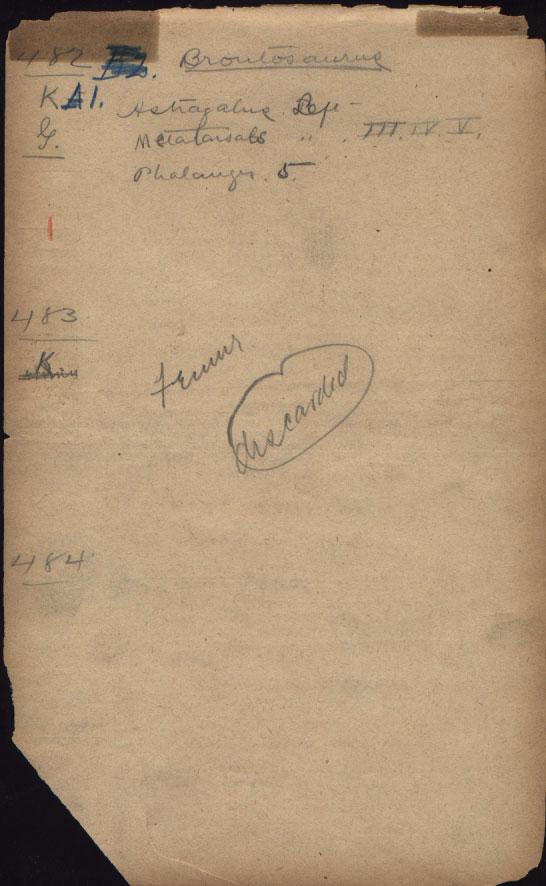 482 Brontosaurus
K A1. Astragalus Left -
G. Metatarsals " . III. IV. V.
Phalanges. 5
483
K
Femur.
discarded
484